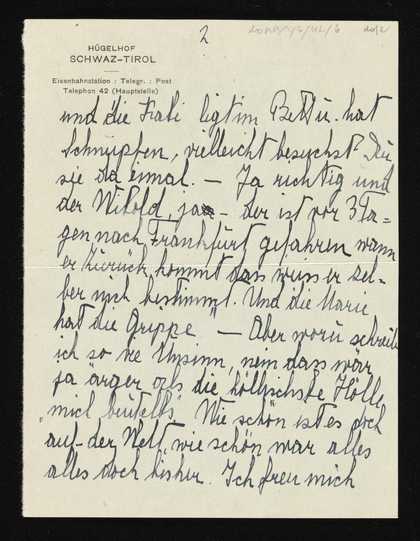 2
HÜGELHOF
SCHWAZ-TIROL
Eisenbahnstation : Telegr. : Post
Telephon 42 (Hauptstelle)
und die Frabi ligt im Bett u. hat
Schnupfen, vielleicht besuchst Du
sie da eimal. — Ja richtig und
der Witold, ja — der ist vor 3 Ta=
gen nach Frankfurt gefahren wann
er zurück kommt das weiss er sel=
ber nich bestimmt. Und die Marie
hat die Grippe — Aber worü schreibe
ich so vie Unsinn, nein das wär
ja ärger als die höllischste Hölle
"mich beutelts" Wie schön ist es doch
auf der Welt, wie schön war alles
alles doch bisher. Ich freu mich